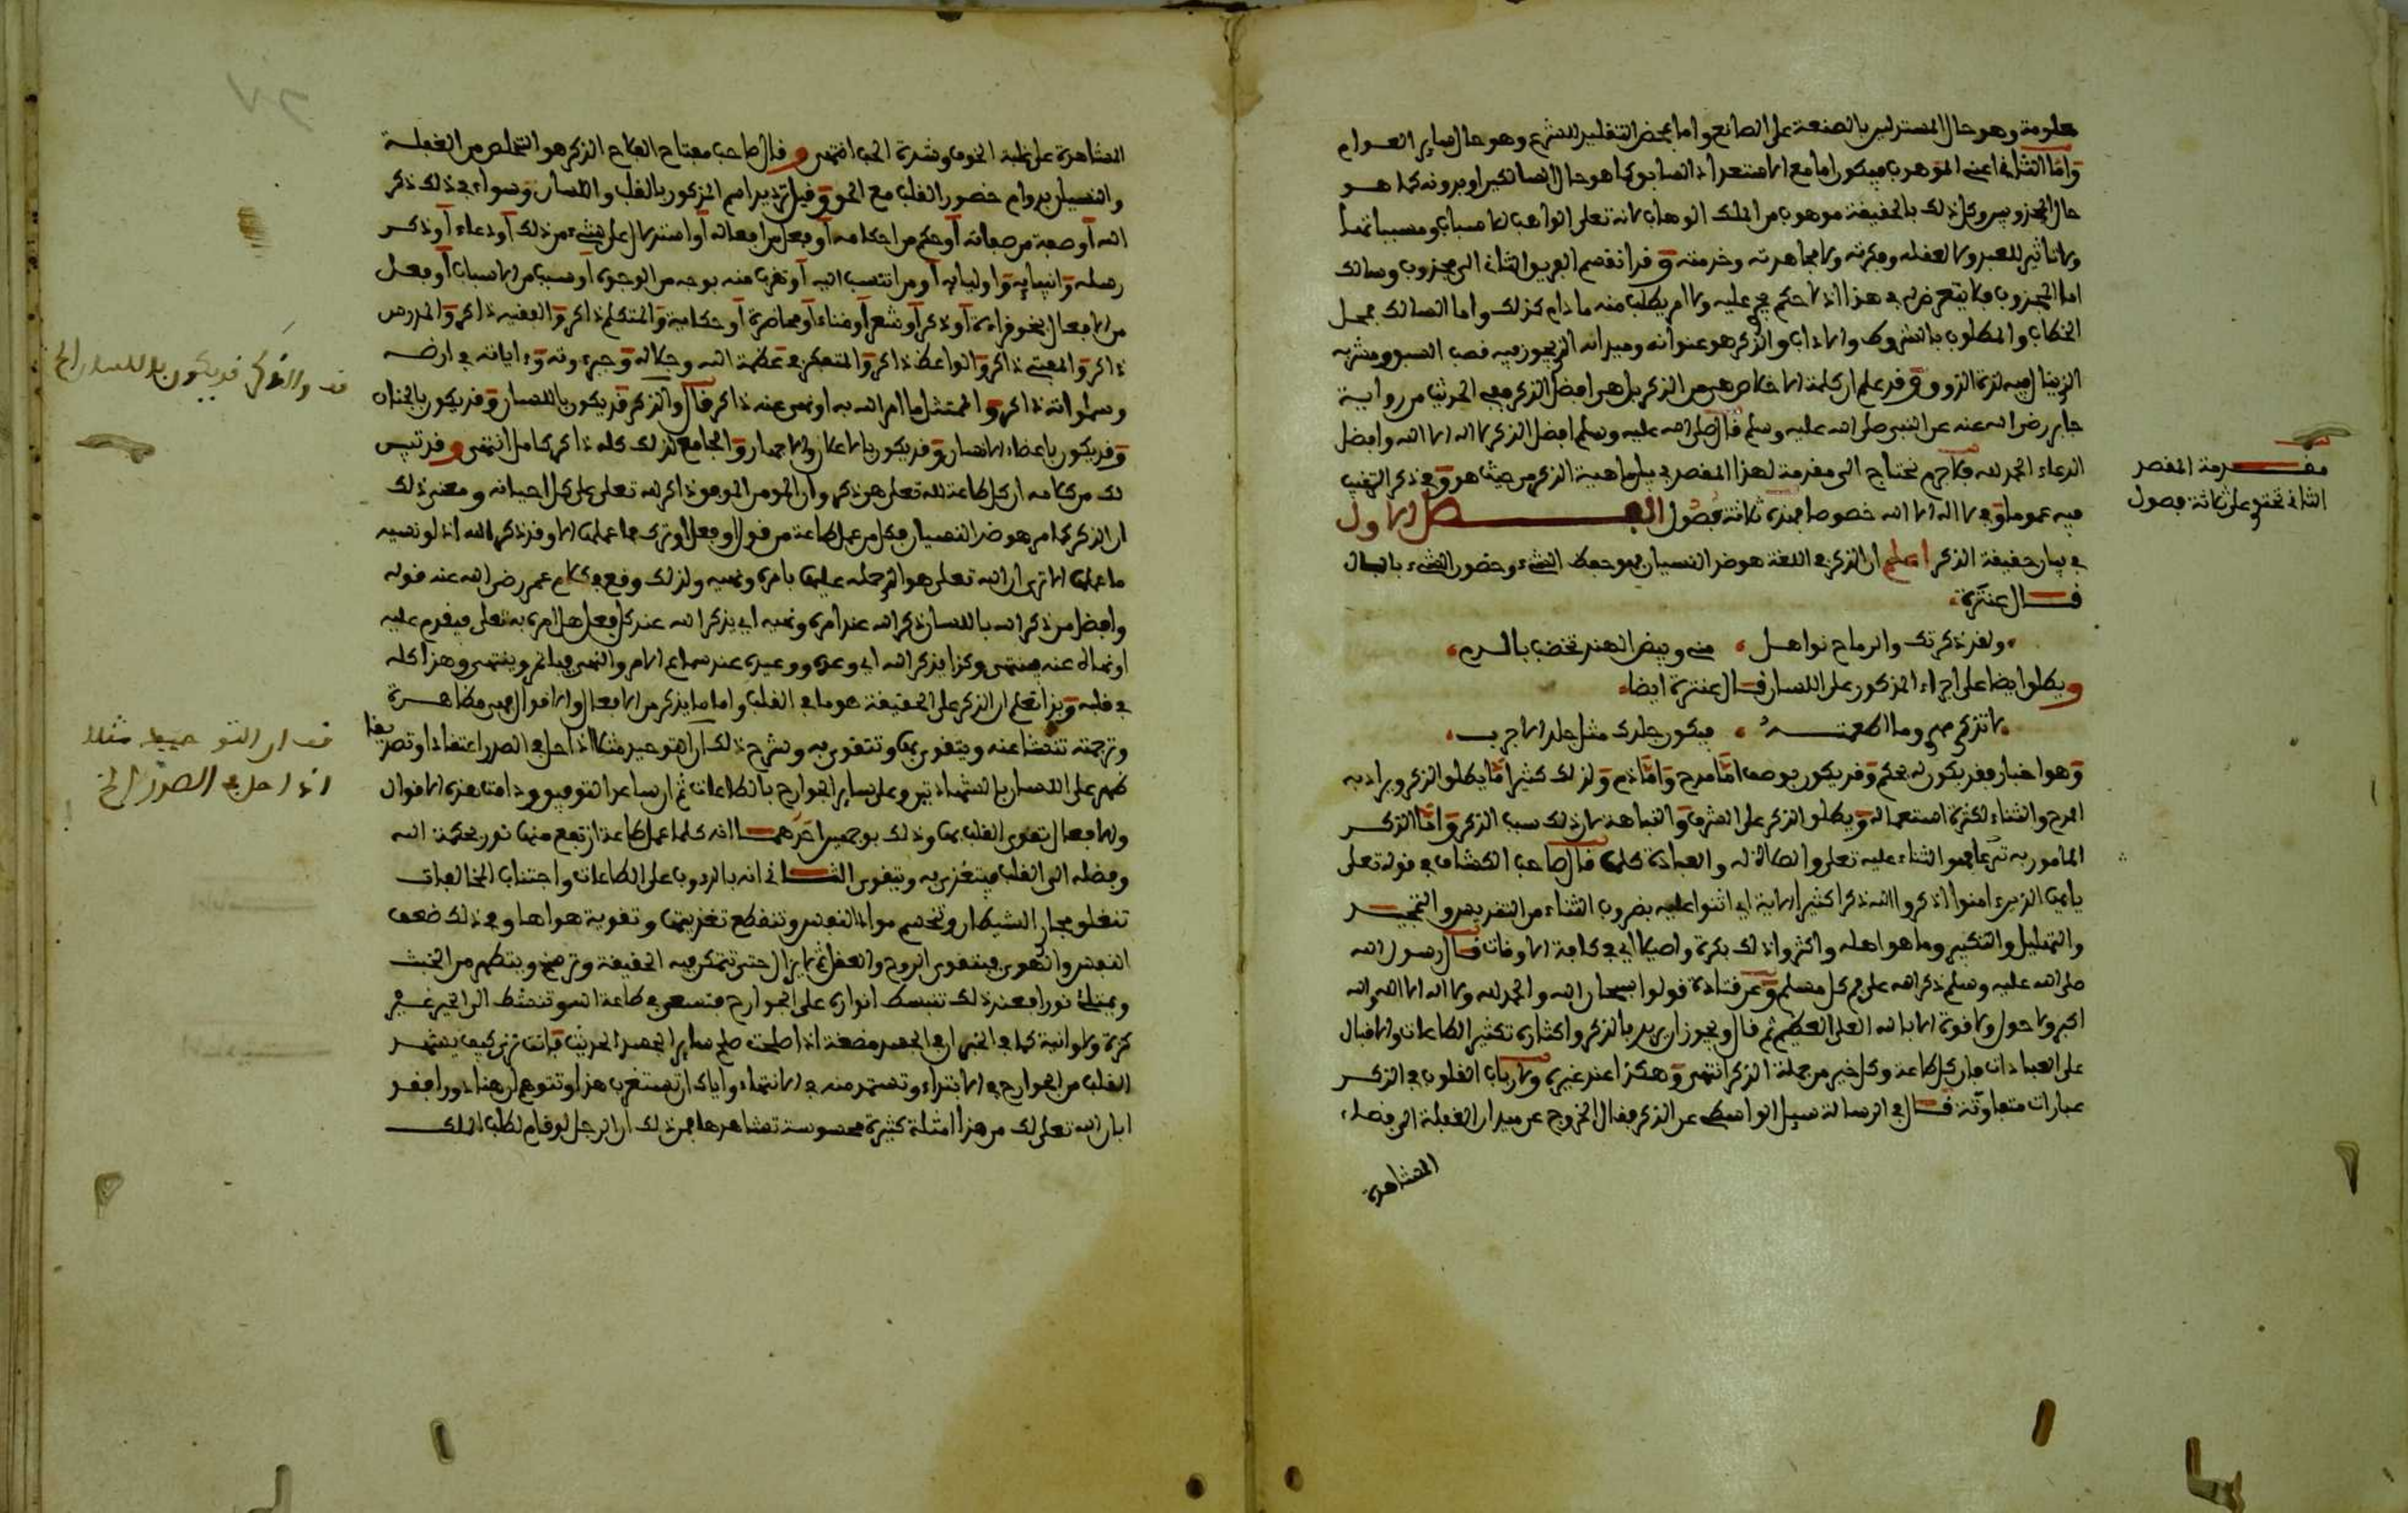 معلومة وهو حال المستدلين بالصنعة على الصانع واما بمحض التقليد للشرع وهو حال ساير العوام
وأما الثاني اعني الموهوب فيكون اما مع الاستعداد السابق كما هو حال السالكين او بدونه كما هو
حال المجذوبين وكل ذلك بالحقيقة موهوب من الملك الوهاب لانه تعلى الواهب للاسباب ومسبباتها
ولا تاثير للعبد ولا لعقله وفكرته ولا مجاهدته وخدمته وقد انقسم الفريق الثاني الى مجذوب وسالك
اما المجذوب فلا يتعرض له في هذا اذ لا حكم يجري عليه ولا امر يطلب منه ما دام كذلك واما السالك فمحل
الخطاب والمطلوب بالشروط والاداب والذكر هو عنوانه وميدانه الذي يحوز فيه قصب السبق ومشربه
الذي ينال فيه لذة الذوق وقد علم ان كلمة الاخلاص هي من الذكر بل هي افضل الذكر ففي الحديث من رواية
جابر رضي الله عنه عن النبي صلى الله عليه وسلم قال صلى الله عليه وسلم افضل الذكر لا اله الا الله وافضل
الدعاء الحمد لله فلا جرم نحتاج الى مقدمة لهذا المقصد في بيان ماهية الذكر من حيث هو وفي ذكر الترغيب
فيه عموما وفي لا اله الا الله خصوصا فهذه ثلاثة فصول الفصل الاول
في بيان حقيقة الذكر اعلم ان الذكر في اللغة هو ضد النسيان فهو حفظ الشيء وحضور الشيء بالبال
قال عنترة
ولقد ذكرتك والرماح نواهل مني وبيض الهند تخضب بالدم
ويطلق ايضا على اجراء المذكور على اللسان قال عنترة ايضا
لا تذكري مهري وما اطعمته فيكون جلدك مثل جلد الاجرب
وهو اخبار فقد يكون له بحكم وقد يكون بوصف اما مدح واما ذم ولذلك كثيرا ما يطلق الذكر ويراد به
المدح والثناء لكثرة استعماله ويطلق الذكر على الشرف والنباهة لان ذلك سبب الذكر واما الذكر
المامور به شرعا فهو الثناء عليه تعلى والصلاة له والعبادة كلها قال صاحب الكشاف في قوله تعلى
يايها الذين امنوا اذكروا الله ذكرا كثيرا الاية اي اثنوا عليه بضروب الثناء من التقديس والتمجيد
والتهليل والتكبير وما هو اهله واكثروا ذلك بكرة واصيلا اي في كافة الاوقات قال رسول الله
صلى الله عليه وسلم ذكر الله على فم كل مسلم وعن قتادة قولوا سبحان الله والحمد لله ولا اله الا الله والله
اكبر ولا حول ولا قوة الا بالله العلي العظيم ثم قال ويجوز ان يريد بالذكر واكثاره تكثير الطاعات والاقبال
على العبادات فان كل طاعة وكل خير من جملة الذكر انتهى وهكذا عند غيره ولارباب القلوب في الذكر
عبارات متفاوتة قال في الرسالة سيل الواسطي عن الذكر فقال الخروج عن ميدان الغفلة الى فضاء
المشاهدة
مقدمة المقصد
الثاني تحتوي على ثلاثة فصول
المشاهدة على غلبة الخوف وشدة الحب انتهى وقال صاحب مفتاح الفلاح الذكر هو التخلص من الغفلة
والنسيان بدوام حضور القلب مع الحق وقيل ترديد اسم المذكور بالقلب واللسان وسواء في ذلك ذكر
الله أو صفة من صفاته أو حكم من احكامه أو فعل من افعاله أو استدلال على شيء من ذلك أو دعاء أو ذكر
رسله وانبيايه واوليايه أو من انتسب اليه أو تقرب منه بوجه من الوجوه أو سبب من الاسباب أو فعل
من الافعال بنحو قراءة أو ذكر أو شعر أو غناء أو محاضرة أو حكاية والمتكلم ذاكر والفقيه ذاكر والمدرس
ذاكر والمفتي ذاكر والواعظ ذاكر والمتفكر في عظمة الله وجلاله وجبروته وءاياته في ارضه
وسمواته ذاكر والممتثل ما امر الله به او نهى عنه ذاكر قال والذكر قد يكون باللسان وقد يكون بالجنان
وقد يكون باعضاء الانسان وقد يكون بالاعلان والاجهار والجامع لذلك كله ذاكر كامل انتهى وقد تبين
لك من كلامه ان كل طاعة لله تعلى هو ذكر وان المومن الموفق ذاكر لله تعلى على كل احيانه ومعنى ذلك
ان الذكر كما مر هو ضد النسيان فكل من عمل طاعة من قول او فعل او ترك فما عملها الا وقد ذكر الله اذ لو نسيه
ما عملها الا ترى ان الله تعلى هو الذي حمله عليها بامره ونهيه ولذلك وقع في كلام عمر رضي الله عنه قوله
وافضل من ذكر الله باللسان ذكر الله عند امره ونهيه اي يذكر الله عند كل فعل هل امره به تعلى فيقدم عليه
او نهاه عنه فينتهي وكذا يذكر الله اي وعده ووعيده عند سماع الامر والنهي فياتمر وينتهي وهذا كله
في قلبه وبذا تعلم ان الذكر على الحقيقة هو ما في القلب واما ما يذكر من الافعال والاقوال فهي مظاهره
وترجمته تنشا عنه ويتقوى بها وتتقوى به وشرح ذلك ان التوحيد مثلا اذا حل في الصدر اعتقادا وتصديقا
ظهر على اللسان بالشهادتين وعلى ساير الجوارح بالطاعات ثم ان ساعد التوفيق ودامت هذه الاقوال
والافعال تقوى القلب بها وذلك بوجهين احدهما انه كلما عمل طاعة ارتفع منها نور بحكمة الله
وفضله الى القلب فيتغذى به ويتقوى الثاني انه بالدؤب على الطاعات واجتناب المخالفات
تنغلق مجاري الشيطان وتنحسم مواد النفس وتنقطع تغذيتها وتقوية هواها وفي ذلك ضعف
النفس والهوى فيتقوى الروح والعقل ثم لا يزال حتى تتمكن فيه الحقيقة وترسخ ويتطهر من الخبث
ويمتلئ نورا فعند ذلك تنبسط انواره على الجوارح فتسعى في طاعة الله وتنشط الى الخير غير
كزة ولا وانية كما في الخبر ان في الجسد مضغة اذا صلحت صلح ساير الجسد الحديث فانت ترى كيف يستمد
القلب من الجوارح في الابتداء وتستمد منه في الانتهاء واياك ان تستغرب هذا وتتوهم ان هنا دورا فقد
ابان الله تعلى لك من هذا امثلة كثيرة محسوسة تشاهدها فمن ذلك ان الرجل لو قام لطلب الملك
قف والذكر قد يكون باللسان الخ
قف ان التوحيد مثلا
اذا حل في الصدر الخ